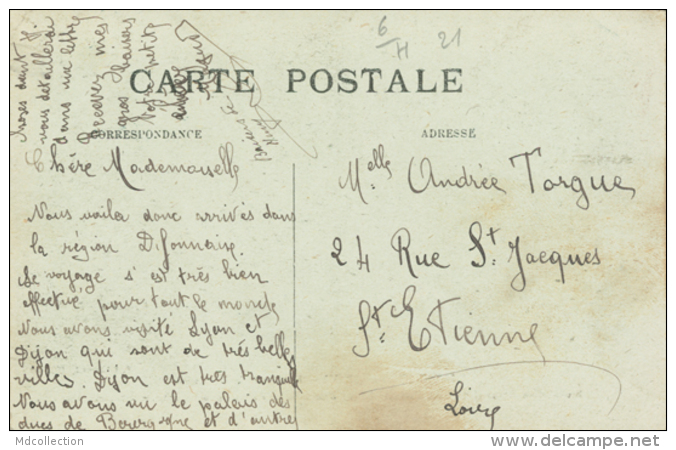 6
H 21
CARTE POSTALE
CORRESPONDANCE
ADRESSE
Chère Mademoiselle
Nous voila donc arrivés dans
la région Dijonnaise.
Le voyage s'est très bien
effectué pour tout le monde
Nous avons visité Lyon et
Dijon qui sont de très belles
villes. Dijon est très tranquille
Nous avons vu le palais des
ducs de Bourgogne et d'autres
choses dont je
vous détaillerai
dans une lettre
Recevez mes
gros baisers
Votre petite
élève
Melle Andrée Torgue
24 Rue St. Jacques
St. Etienne
Loire
Mdcollection
www.delcampe.net